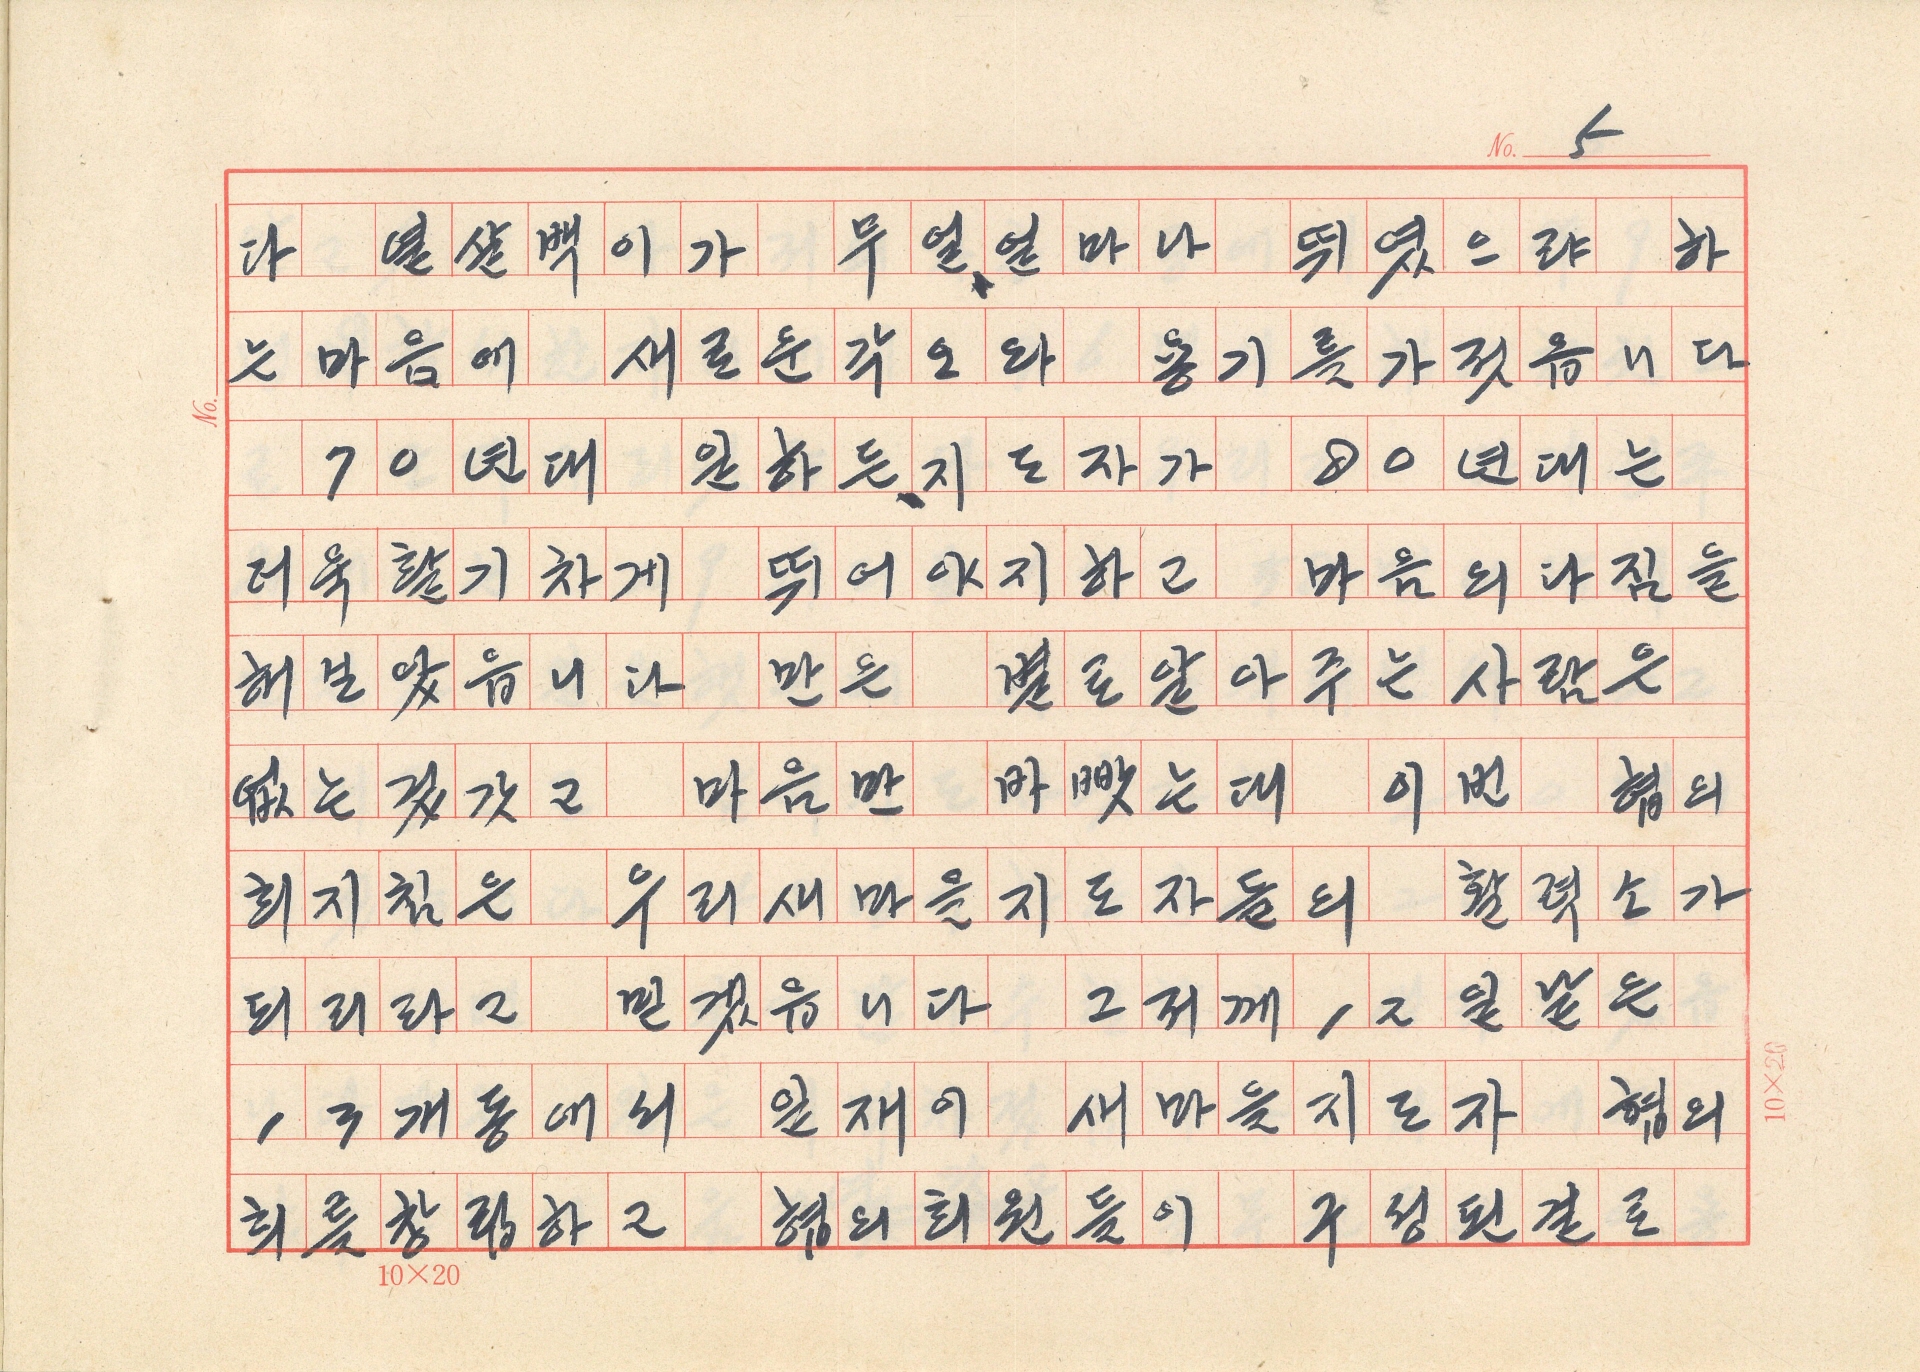 No. 5
다 열살백이가 무얼、얼마나 뛰였으랴 하
는마음에 새로운각오와 용기를가젓읍니다
70년대 일하든、지도자가 80년대는
더욱활기차게 뛰어야지하고 마음의다짐을
해보았읍니다 만은 별로알아주는사람은
없는것갓고 마음만 바빳는대 이번 협의
회지침은 우리새마을지도자들의 활력소가
되리라고 믿겠읍니다 그저께 12일날은
13개동에서 일재이 새마을지도자 협의
회를창립하고 협의회원들이 구성된걸로
No.
10×20
10×20